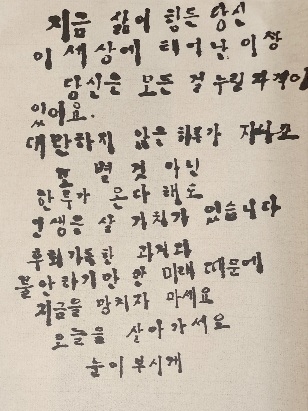 지금 삶이 힘든 당신
이 세상에 태어난 이상
당신은 모든 걸 누릴 자격이
있어요.
대단하지 않은 하루가 지나고
또 별 것 아닌
한 루가 온다 해도
인생은 살 가치가 있습니다
후회가득한 과거와
불안하기만 한 미래 때문에
지금을 망치지 마세요
오늘을 살아가세요
눈이 부시게